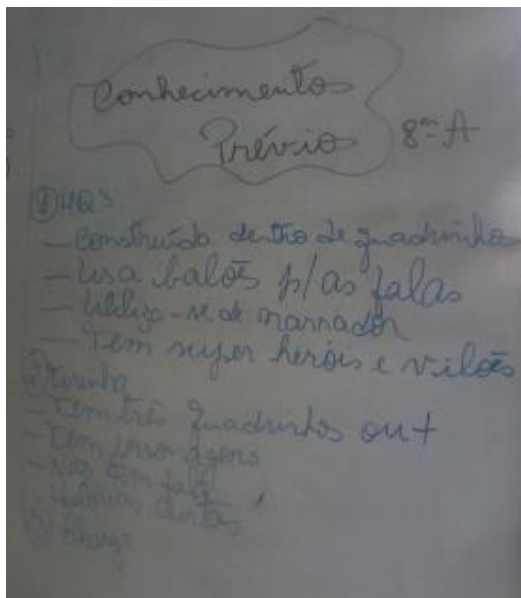 Conhecimentos
Prévio 8ª A
① HQ's
- Construída dentro de quadrinhos
- Usa balões p/ as falas
- Utiliza-se de narrador
- Tem super heróis e vilões
② Tirinha
- Tem três quadrinhos ou +
- Tem personagens
- Não tem fala
- Histórias curtas
③ Charge